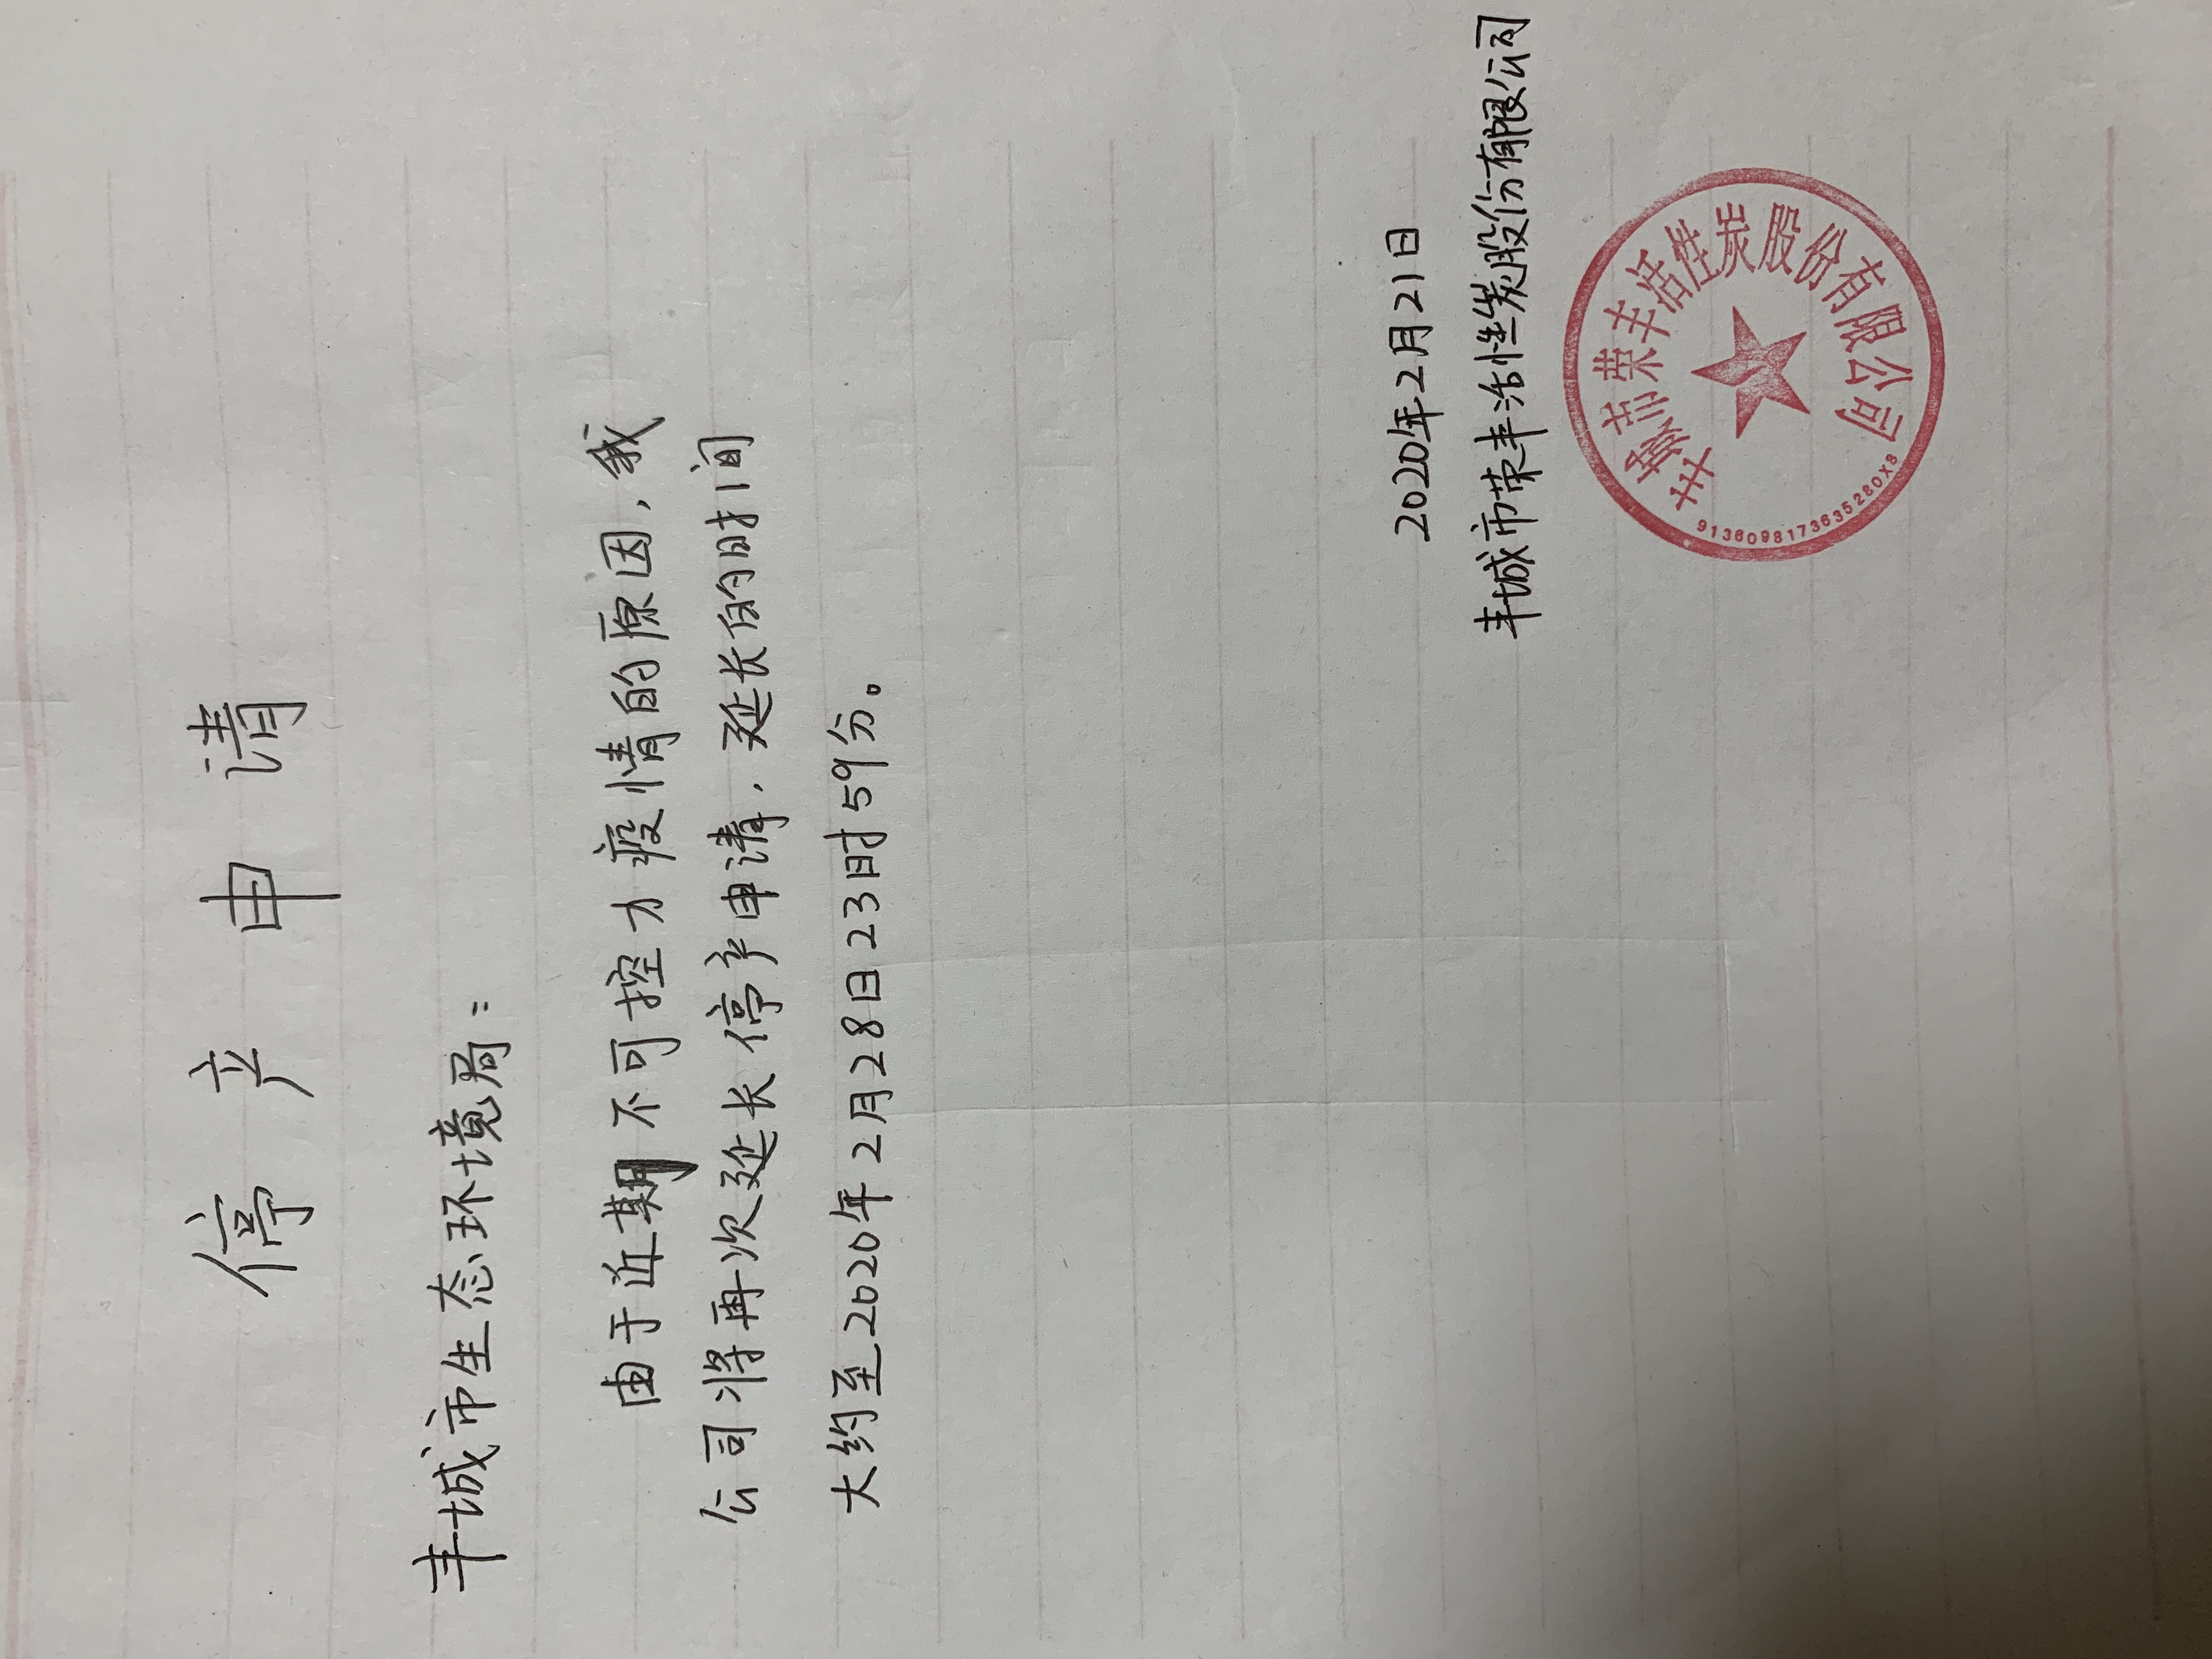 停产申请
丰城市生态环境局：
由于近期不可控力疫情的原因，我
公司将再次延长停产申请，延长的时间
大约至2020年2月28日23时59分。
2020年2月21日
丰城市荣丰活性炭股份有限公司
丰城市荣丰活性炭股份有限公司
9136098173635280X8